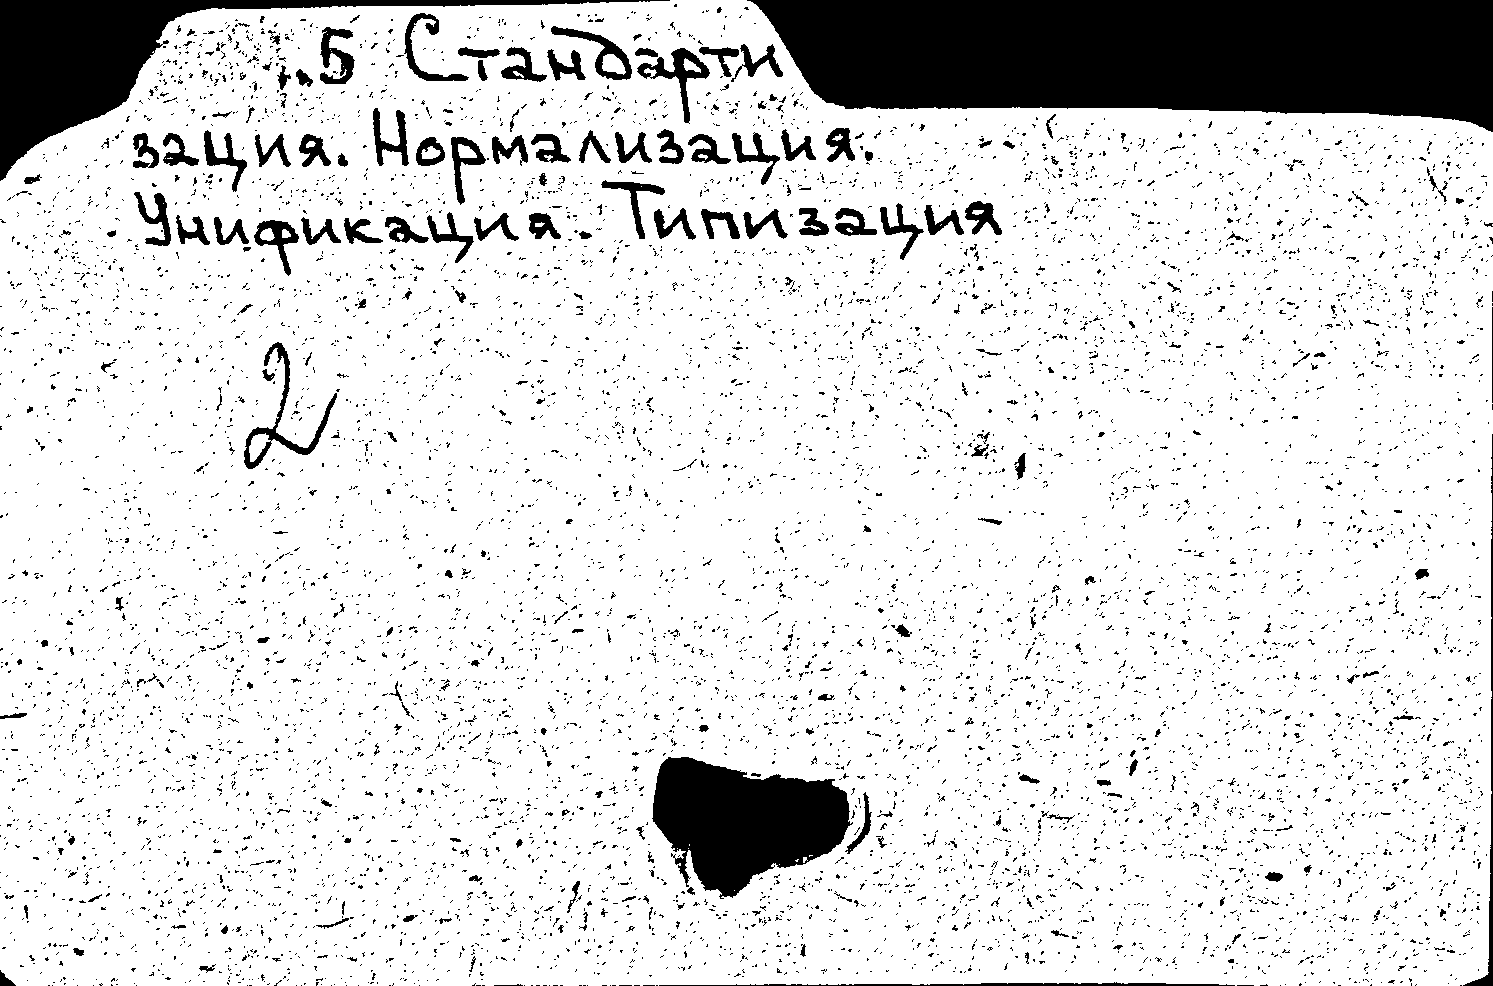 ..5 Стандарти
зация. Нормализация.
Унификация. Типизация
2